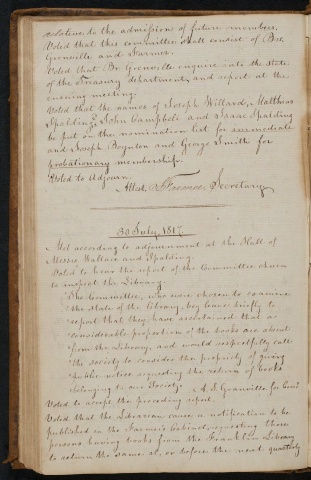 relative to the admission of future members.
Voted that this committee shall consist of Brs.
Grenville and Farmer.
Voted that Br. Grenville enquire into the state
of the Treasury department, and report at the
ensuing meeting.
Voted that the names of Joseph Willard, Matthias
Spalding, John Campbell and Isaac Spalding
be put on the nomination list for immediate
and Joseph Boynton and George Smith for
probationary membership.
Voted to Adjourn.
Attest, Farmer Secretary
30 July, 1817
Met according to adjournment at the Hall of
Messrs Wallace and Spalding.
Voted to hear the report of the Committee chosen
to inspect the Library.
The Committee, who were chosen to examine
the state of the Library, beg leave briefly to
report that they have ascertained that a
considerable proportion of the books are absent
from the Library, and would respectfully call
the society to consider the propriety of giving
public notice requesting the return of books
belonging to our Society. A. S. Grenville for Com.
Voted to accept the preceding report.
Voted that the Librarian cause a notification to be
published in the Farmer's Cabinet, requesting those
persons having books from the Franklin Library
to return the same at, or before the next quarterly